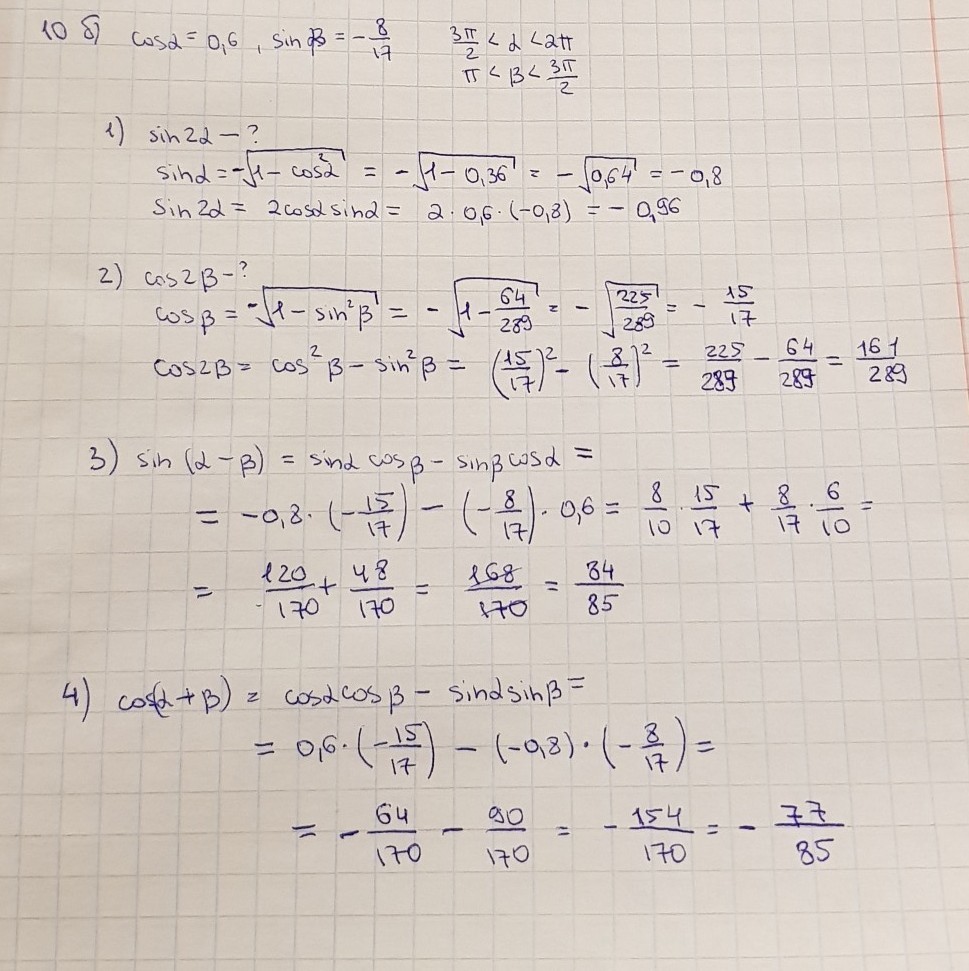 10 б) cosα = 0,6 , sinβ = -8/17   3π/2 < α < 2π
π < β < 3π/2
1) sin2α - ?
sinα = -√(1 - cos²α) = -√(1 - 0,36) = -√0,64 = -0,8
Sin2α = 2cosα sinα = 2 · 0,6 · (-0,8) = -0,96
2) cos2β - ?
cosβ = -√(1 - sin²β) = -√(1 - 64/289) = -√(225/289) = -15/17
cos2β = cos²β - sin²β = (15/17)² - (8/17)² = 225/289 - 64/289 = 161/289
3) sin(α - β) = sinα cosβ - sinβ cosα =
= -0,8 · (-15/17) - (-8/17) · 0,6 = 8/10 · 15/17 + 8/17 · 6/10 =
= 120/170 + 48/170 = 168/170 = 84/85
4) cos(α + β) = cosα cosβ - sinα sinβ =
= 0,6 · (-15/17) - (-0,8) · (-8/17) =
= -64/170 - 90/170 = -154/170 = -77/85